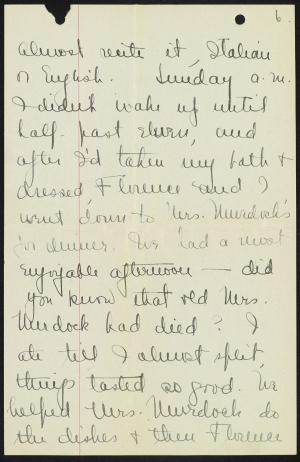 6.
almost recite it, Italian
or English. Sunday a.m.
I didn't wake up until
half-past eleven, and
after I'd taken my bath &
dressed, Florence and I
went down to Mrs. Murdock's
for dinner. We had a most
enjoyable afternoon — did
you know that old Mrs.
Murdock had died? I
ate till I almost split,
things tasted so good. We
helped Mrs. Murdock do
the dishes & then Florence